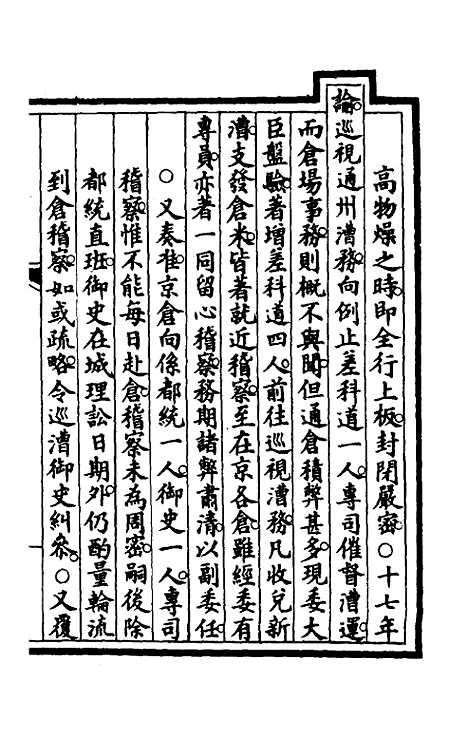 高物燥之時即全行上板封閉嚴密○十七年
諭巡視通州漕務向例止差科道一人專司催督漕運
而倉場事務則概不與聞但通倉積弊甚多現委大
臣盤驗著增差科道四人前往巡視漕務凡收兌新
漕支發倉米皆著就近稽察至在京各倉雖經委有
專員亦著一同留心稽察務期諸弊肅清以副委任
○又奏准京倉向係都統一人御史一人專司
稽察惟不能每日赴倉稽察未為周密嗣後除
都統直班御史在城理訟日期外仍酌量輪流
到倉稽察如或疏略令巡漕御史糾叅○又覆